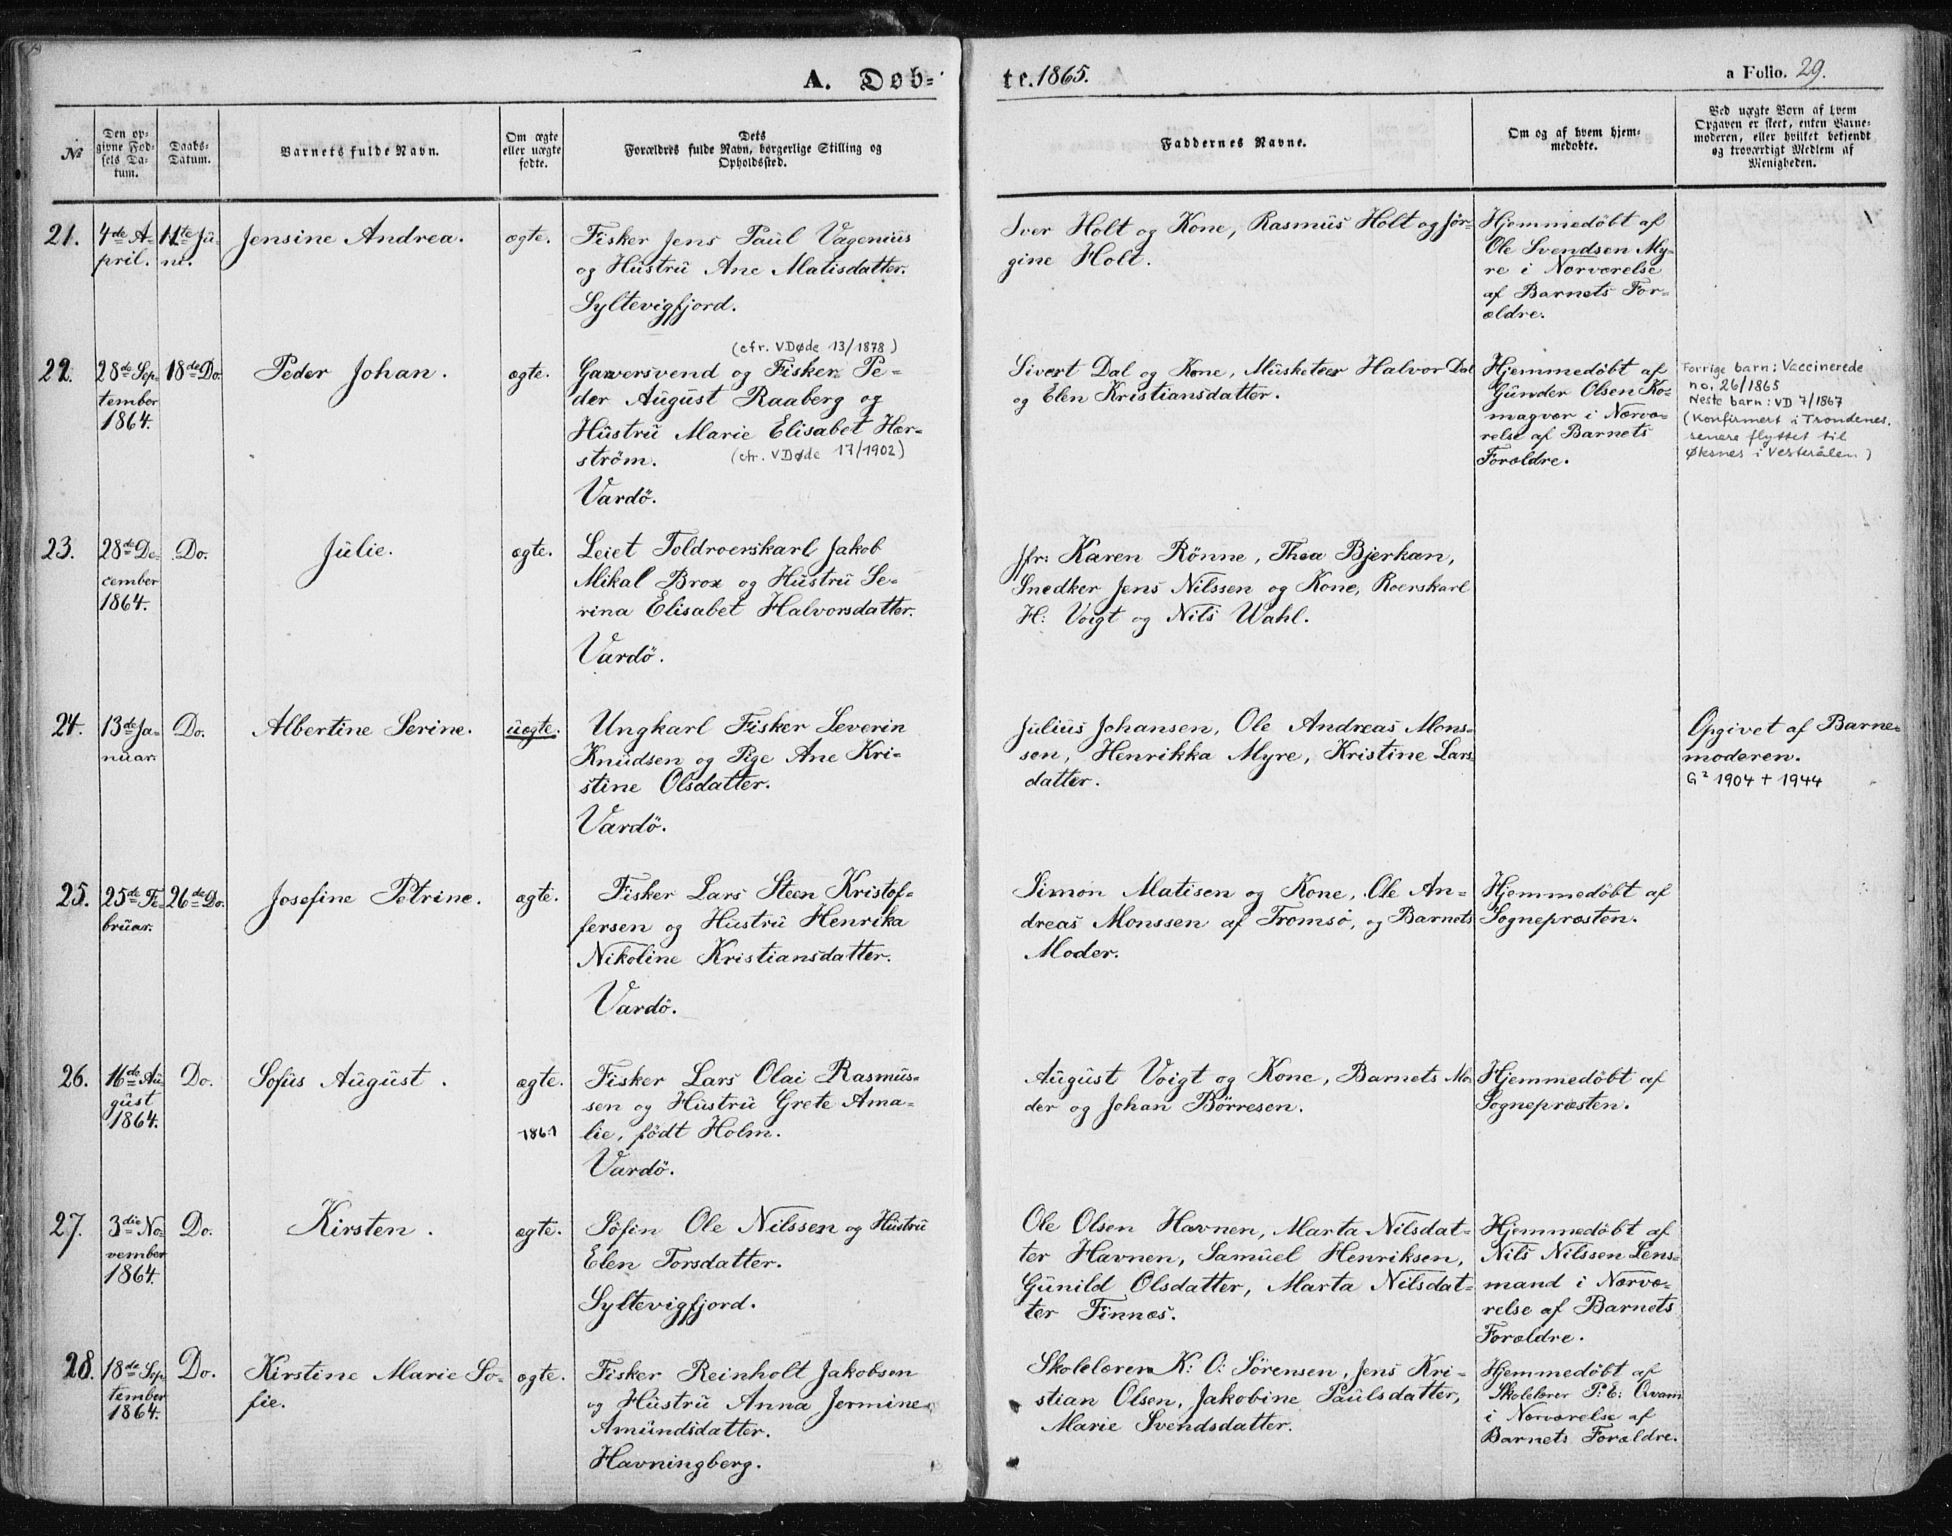 A. Døb-
te. 1865.
a Folio. 29.
No
Den op-
givne Fød-
sels Da-
tum.
Daabs-
Datum.
Barnets fulde Navn.
Om ægte
eller uægte
fødte.
Dets
Forældres fulde Navn, borgerlige Stilling og
Opholdssted.
Faddernes Navne.
Om og af hvem hjem-
medøbte.
Ved uægte Børn af hvem
Opgaven er skeet, enten Barne-
moderen, eller hvilket bekjendt
og troværdigt Medlem af
Menigheden.
21.
4de A-
pril.
11te Ju-
ni.
Jensine Andrea.
ægte.
Fisker Jens Paul Vagenius
og Hustru Ane Matisdatter.
Syltevigfjord.
Iver Holt og Kone, Rasmus Holt og Jør-
gine Holt.
Hjemmedøbt af
Ole Svendsen My-
re i Nærværelse
af Barnets For-
ældre.
22.
28de Sep-
tember
1864.
18de Do.
Peder Johan.
ægte.
(cfr. VDøde 13/1878)
Garversvend og Fisker Pe-
der August Raaberg og
Hustru Marie Elisabet Hær-
ström.
(cfr. VDøde 17/1902)
Vardö.
Sivert Dal og Kone, Musketeer Halvor Dal
og Elen Kristiansdatter.
Hjemmedøbt af
Gunder Olsen Ko-
magvær i Nærvæ-
relse af Barnets
Forældre.
Forrige barn: Vaccinerede
no. 26/1865
Neste barn: VD 7/1867
(Konfirmert i Trondenes,
senere flyttet til
Øksnes i Vesterålen)
23.
28de De-
cember
1864.
Do.
Julie.
ægte.
Leiet Toldroerskarl Jakob
Mikal Brox og Hustru Se-
rina Elisabet Halvorsdatter.
Vardö.
Jfr: Karen Rönne, Thea Bjerkan,
Snedker Jens Nilssen og Kone, Roerskarl
H: Voigt og Nils Wahl.
24.
13de Ja-
nuar.
Do.
Albertine Serine.
uægte.
Ungkarl Fisker Severin
Knudsen og Pige Ane Kri-
stine Olsdatter.
Vardö.
Julius Johansen, Ole Andreas Mons-
sen, Henrikka Myre, Kristine Lars
datter.
Opgivet af Barne-
moderen.
G² 1904 + 1944
25.
25de Fe-
bruar.
26de Do.
Josefine Petrine.
ægte.
Fisker Lars Steen Kristof-
fersen og Hustru Henrika
Nikoline Kristiansdatter.
Vardö.
Simon Matisen og Kone, Ole An-
dreas Monssen af Tromsö, og Barnets
Moder.
Hjemmedøbt af
Sognepræsten.
26.
16de Au-
gust
1864.
Do.
Sofus August.
ægte.
1861
Fisker Lars Olai Rasmus-
sen og Hustru Grete Ama-
lie, født Holm.
Vardö.
August Voigt og Kone, Barnets Mo-
der og Johan Börresen.
Hjemmedøbt af
Sognepræsten.
27.
3die No-
vember
1864.
Do.
Kirsten.
ægte.
Söfin Ole Nilssen og Hustru
Elen Torsdatter.
Syltevigfjord.
Ole Olsen Havnen, Marta Nilsdat-
ter Havnen, Samuel Henriksen,
Gunild Olsdatter, Marta Nilsdat-
ter Finnæs.
Hjemmedøbt af
Nils Nilssen Lens-
mand i Nærvæ-
relse af Barnets
Forældre.
28.
18de Sep-
tember
1864.
Do.
Kirstine Marie So-
fie.
ægte.
Fisker Reinholt Jakobsen
og Hustru Anna Jermine
Amundsdatter.
Havningberg.
Skolelærer K: O: Sörensen, Jens Kri-
stian Olsen, Jakobine Paulsdatter,
Marie Svendsdatter.
Hjemmedøbt af
Skolelærer P: E: Qvam
i Nærværelse af
Barnets Forældre.